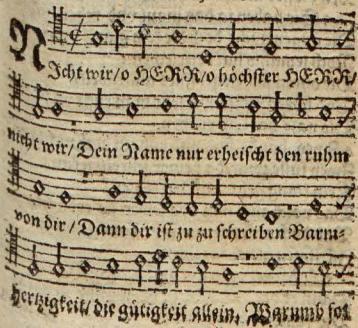 NIcht wir/o HERR/o höchster HERR/
nicht wir/ Dein Name nur erheischt den ruhm
von dir / Dann dir ist zu zu schreiben Barm-
hertzigkeit/ die gütigkeit allein. Warumb sol